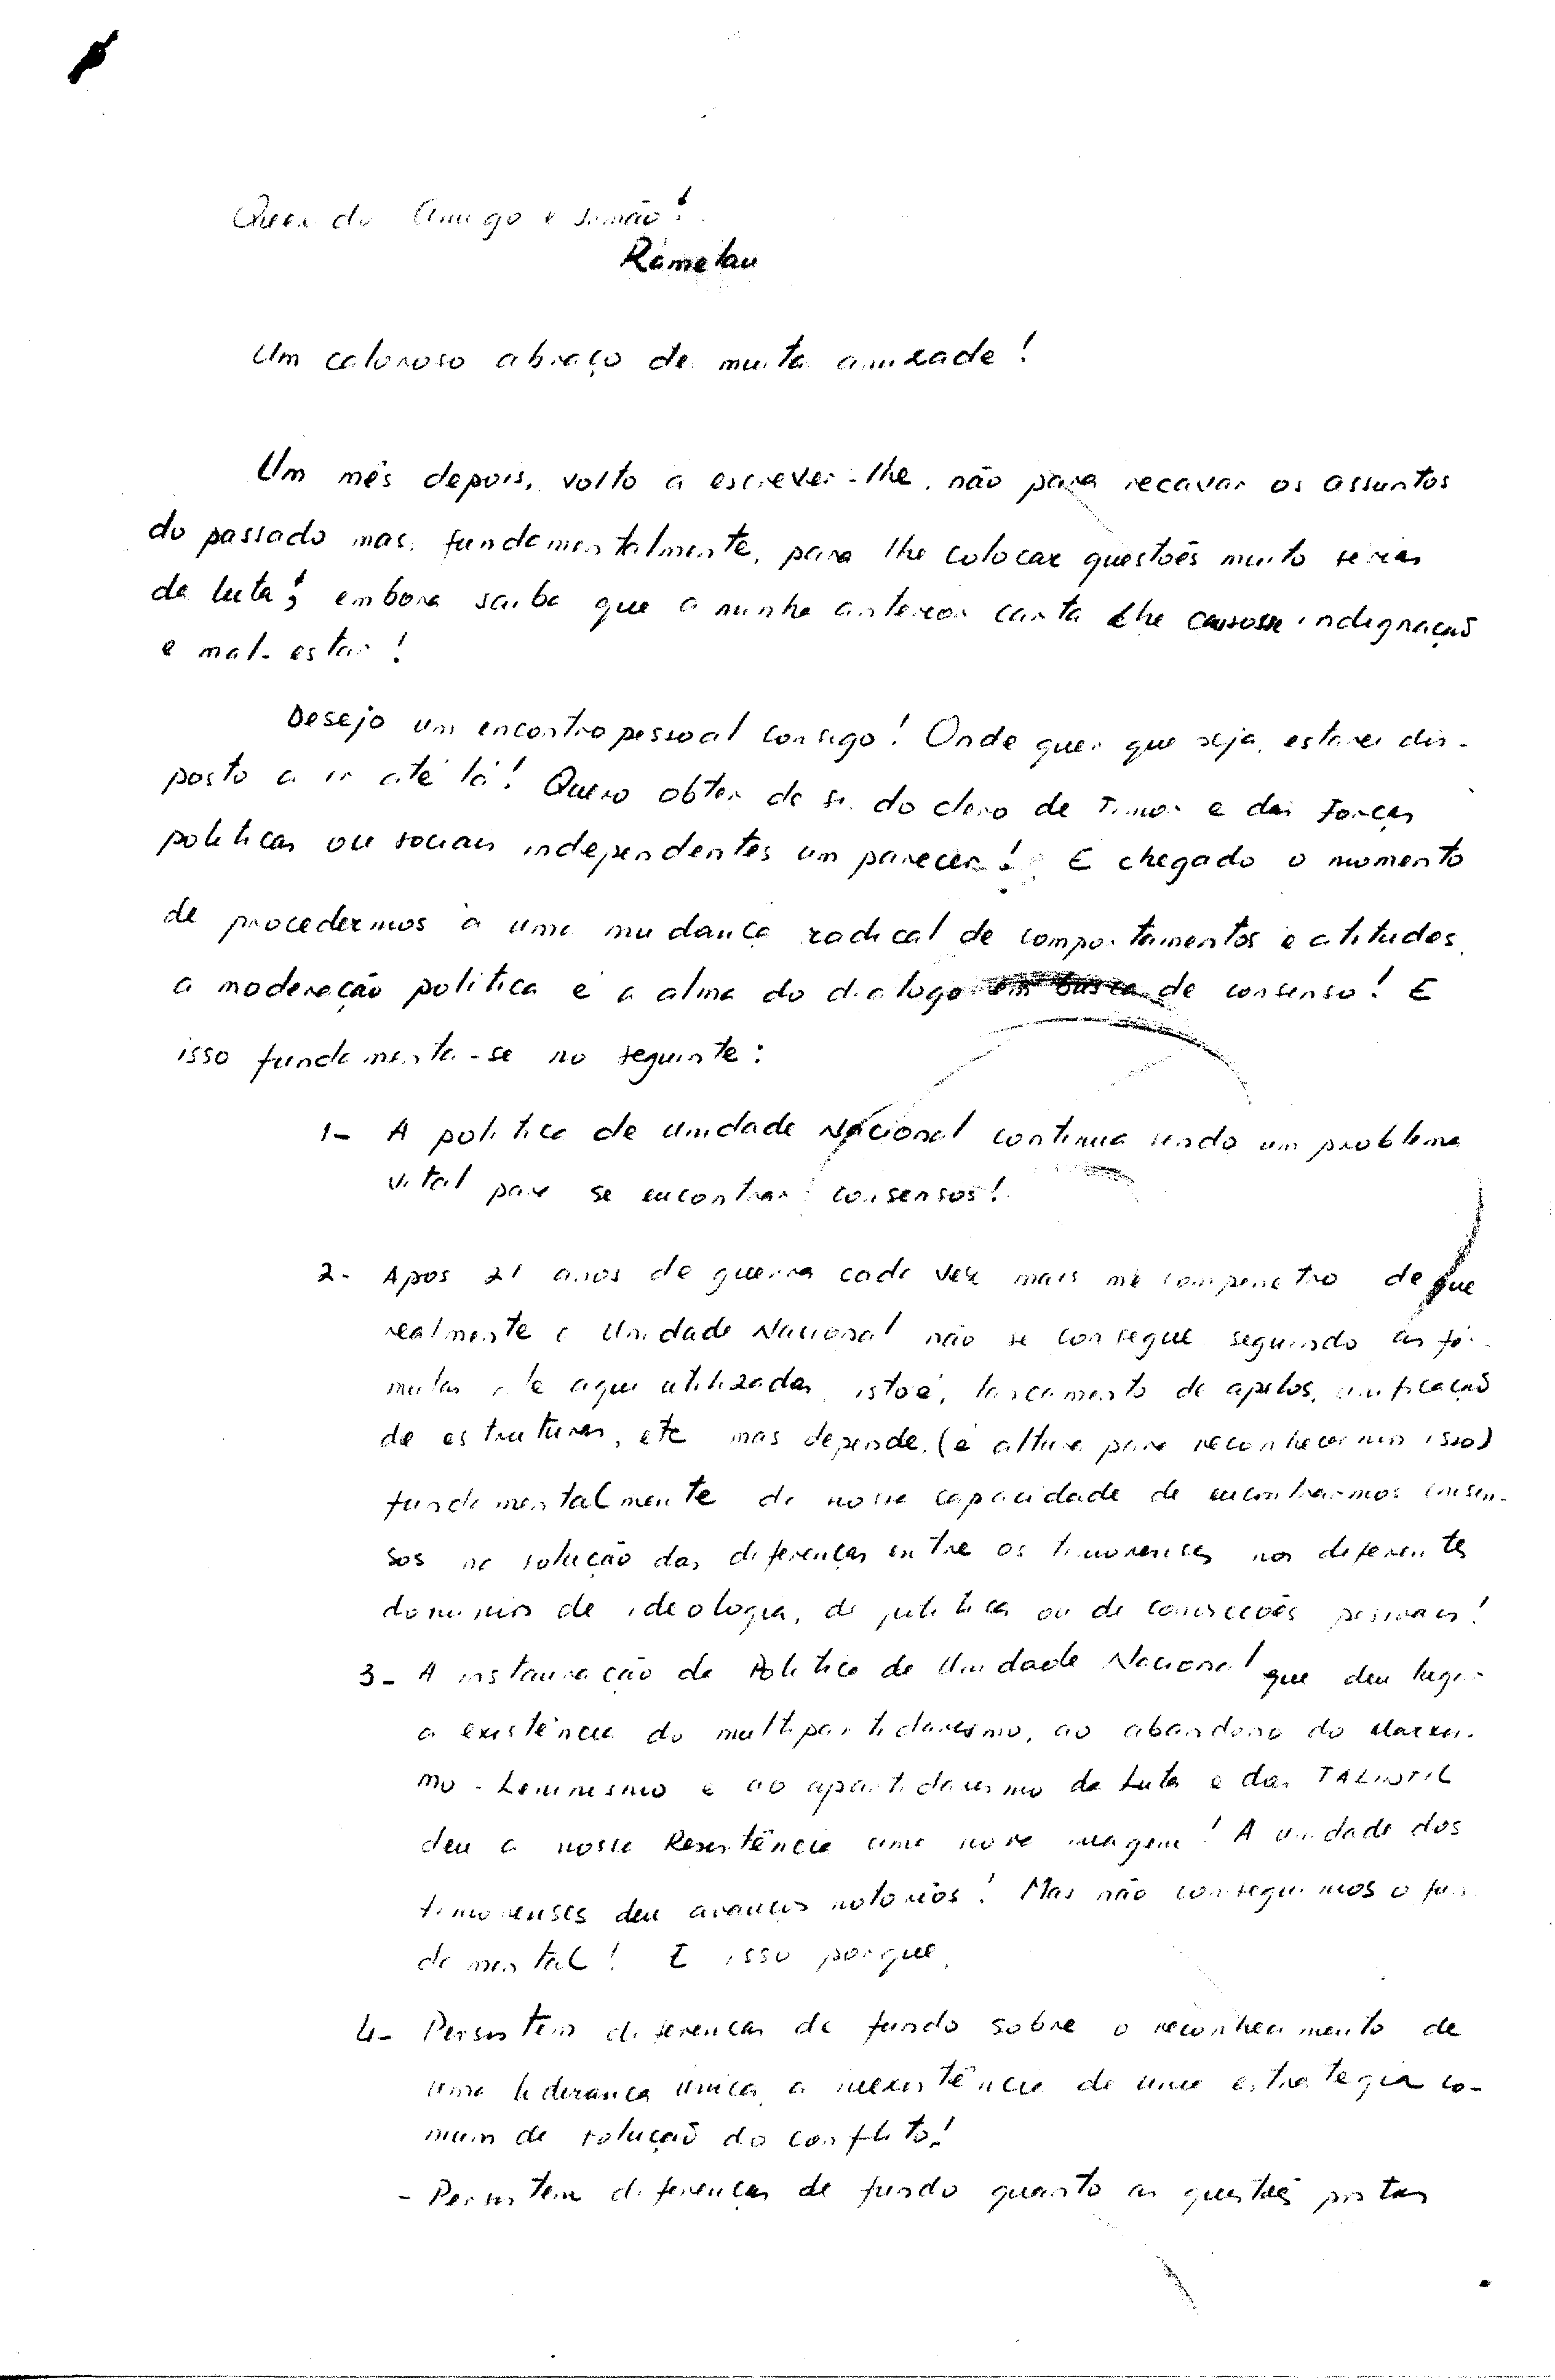 Querido Amigo e irmão!
Ramelau
Um caloroso abraço de muita amizade!
Um mês depois, volto a escrever-lhe, não para recavar os assuntos
do passado mas, fundamentalmente, para lhe colocar questões muito serias
da luta; embora saiba que a minha anterior carta lhe causasse indignação
e mal-estar!
Desejo um encontro pessoal consigo! Onde quer que seja, estarei dis-
posto a ir até lá! Quero obter de si, do clero de Timor e das Forças
politicas ou sociais independentes um parecer! E chegado o momento
de procedermos à uma mudança radical de comportamentos e atitudes,
a moderação politica e a alma do dialogo em busca de consenso! E
isso fundamenta-se no seguinte:
1- A politica de Unidade Nacional continua sendo um problema
vital para se encontrar consensos!
2- Apos 21 anos de guerra cada vez mais me compenetro de que
realmente a Unidade Nacional não se consegue seguindo as fór-
mulas até aqui utilizadas, isto é, lançamento de apelos, unificação
de estruturas, etc mas depende, (é altura para reconhecermos isso)
fundamentalmente da nossa capacidade de encontrarmos consen-
sos na solução das diferenças entre os timorenses nos diferentes
dominios de ideologia, de politica ou de convicções pessoais!
3- A instauração da Politica de Unidade Nacional que deu lugar
a existência do multipartidarismo, ao abandono do Marxis-
mo-Leninismo e ao apartidarismo da Luta e das FALINTIL
deu a nossa Resistência uma nova imagem! A unidade dos
timorenses deu avanços notorios! Mas não conseguimos o fun-
damental! E isso porque,
4- Persistem diferenças de fundo sobre o reconhecimento de
uma liderança unica, a inexistência de uma estrategia co-
mum de solução do conflito!
- Persistem diferenças de fundo quanto as questões postas